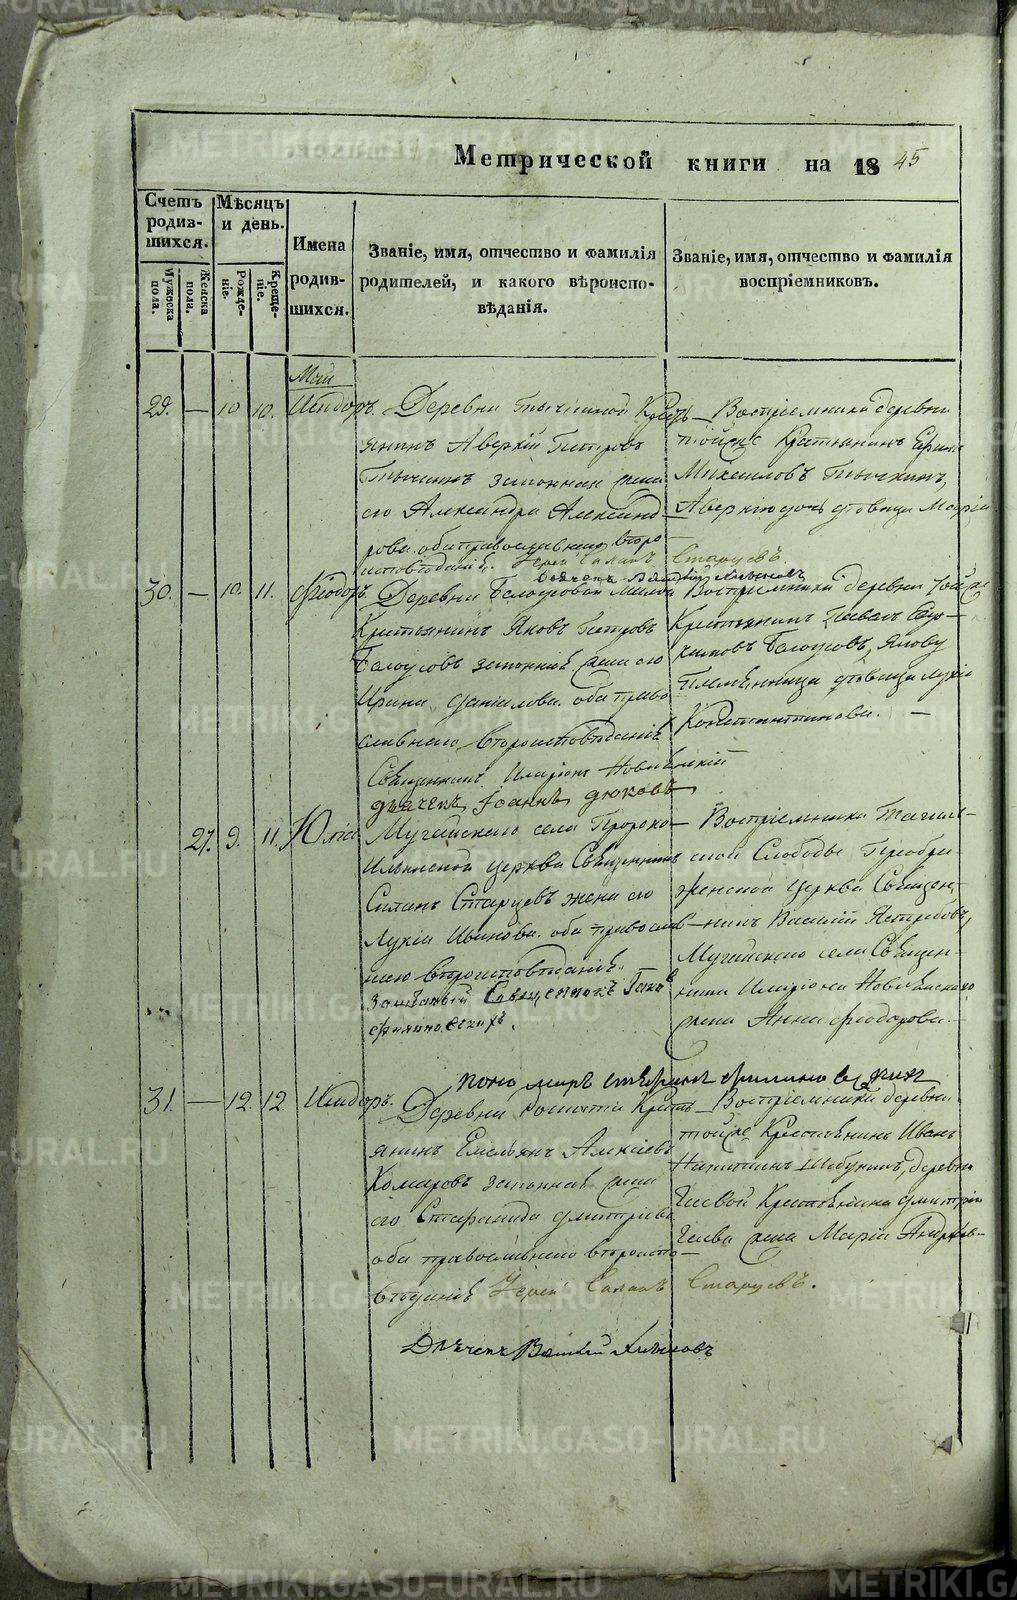 Метрической книги на 1845
Счетъ родив-шихся.
Мѣсяцъ и день.
Имена родив-шихся.
Званіе, имя, отчество и фамилія родителей, и какого вѣроиспо-вѣданія.
Званіе, имя, отчество и фамилія воспріемниковъ.
Мужеска пола.
Женска пола.
Рожде-ніе.
Креще-ніе.
Маи
29. — 10 10. Исидоръ. Деревни Тычкиной Кресть-
янинъ Аверкій Петровъ
Тычкинъ законная жена
его Александра Александ-
рова. оба православнаго вѣро-
исповѣданія. Іерей Силанъ Старцевъ
Дьячекъ
Воспріемники деревни
тойже Крестьянинъ
Михаиловъ Тычкинъ,
Аверкію дочь дѣвица Марія
30. — 10. 11. Ѳеодоръ. Деревни Белоусовой
Крестьянинъ Яковъ Петровъ
Белоусовъ законная жена его
Ирина Даніилова. оба право-
славнаго вѣроисповѣданія
Священникъ Иларіонъ
дьячекъ Іоаннъ Дюковъ
Воспріемники деревни тойже
Крестьянинъ Павелъ
Белоусовъ, Якову
племянница дѣвица Лукія
Константинова. —
27. 9. 11. Юлія Мугайскаго села Пророко-
Ильинской церкви Священникъ
Силанъ Старцевъ жена его
Лукія Иванова. оба православ-
наго вѣроисповѣданія.
Заштатный Священникъ
Воспріемники Тагиль-
ской Слободы Преобра-
женской церкви Священ-
никъ Василій Ястребовъ,
Мугайскаго села Священ-
ника Иларіона
жена Анна Ѳеодорова. —
31. — 12. 12. Исидоръ. Деревни Кресть-
янинъ Емельянъ Алексіевъ
Комаровъ законная жена
его Степанида Дмитріева
оба православнаго вѣроиспо-
вѣданія Іерей Силанъ Старцевъ.
Воспріемники деревни
тойже Крестьянинъ Иванъ
Никитинъ деревни
Гаевой Крестьянина Дмитрія
Гаева жена Марія Андреев-
Дьячекъ
METRIKI.GASO-URAL.RU